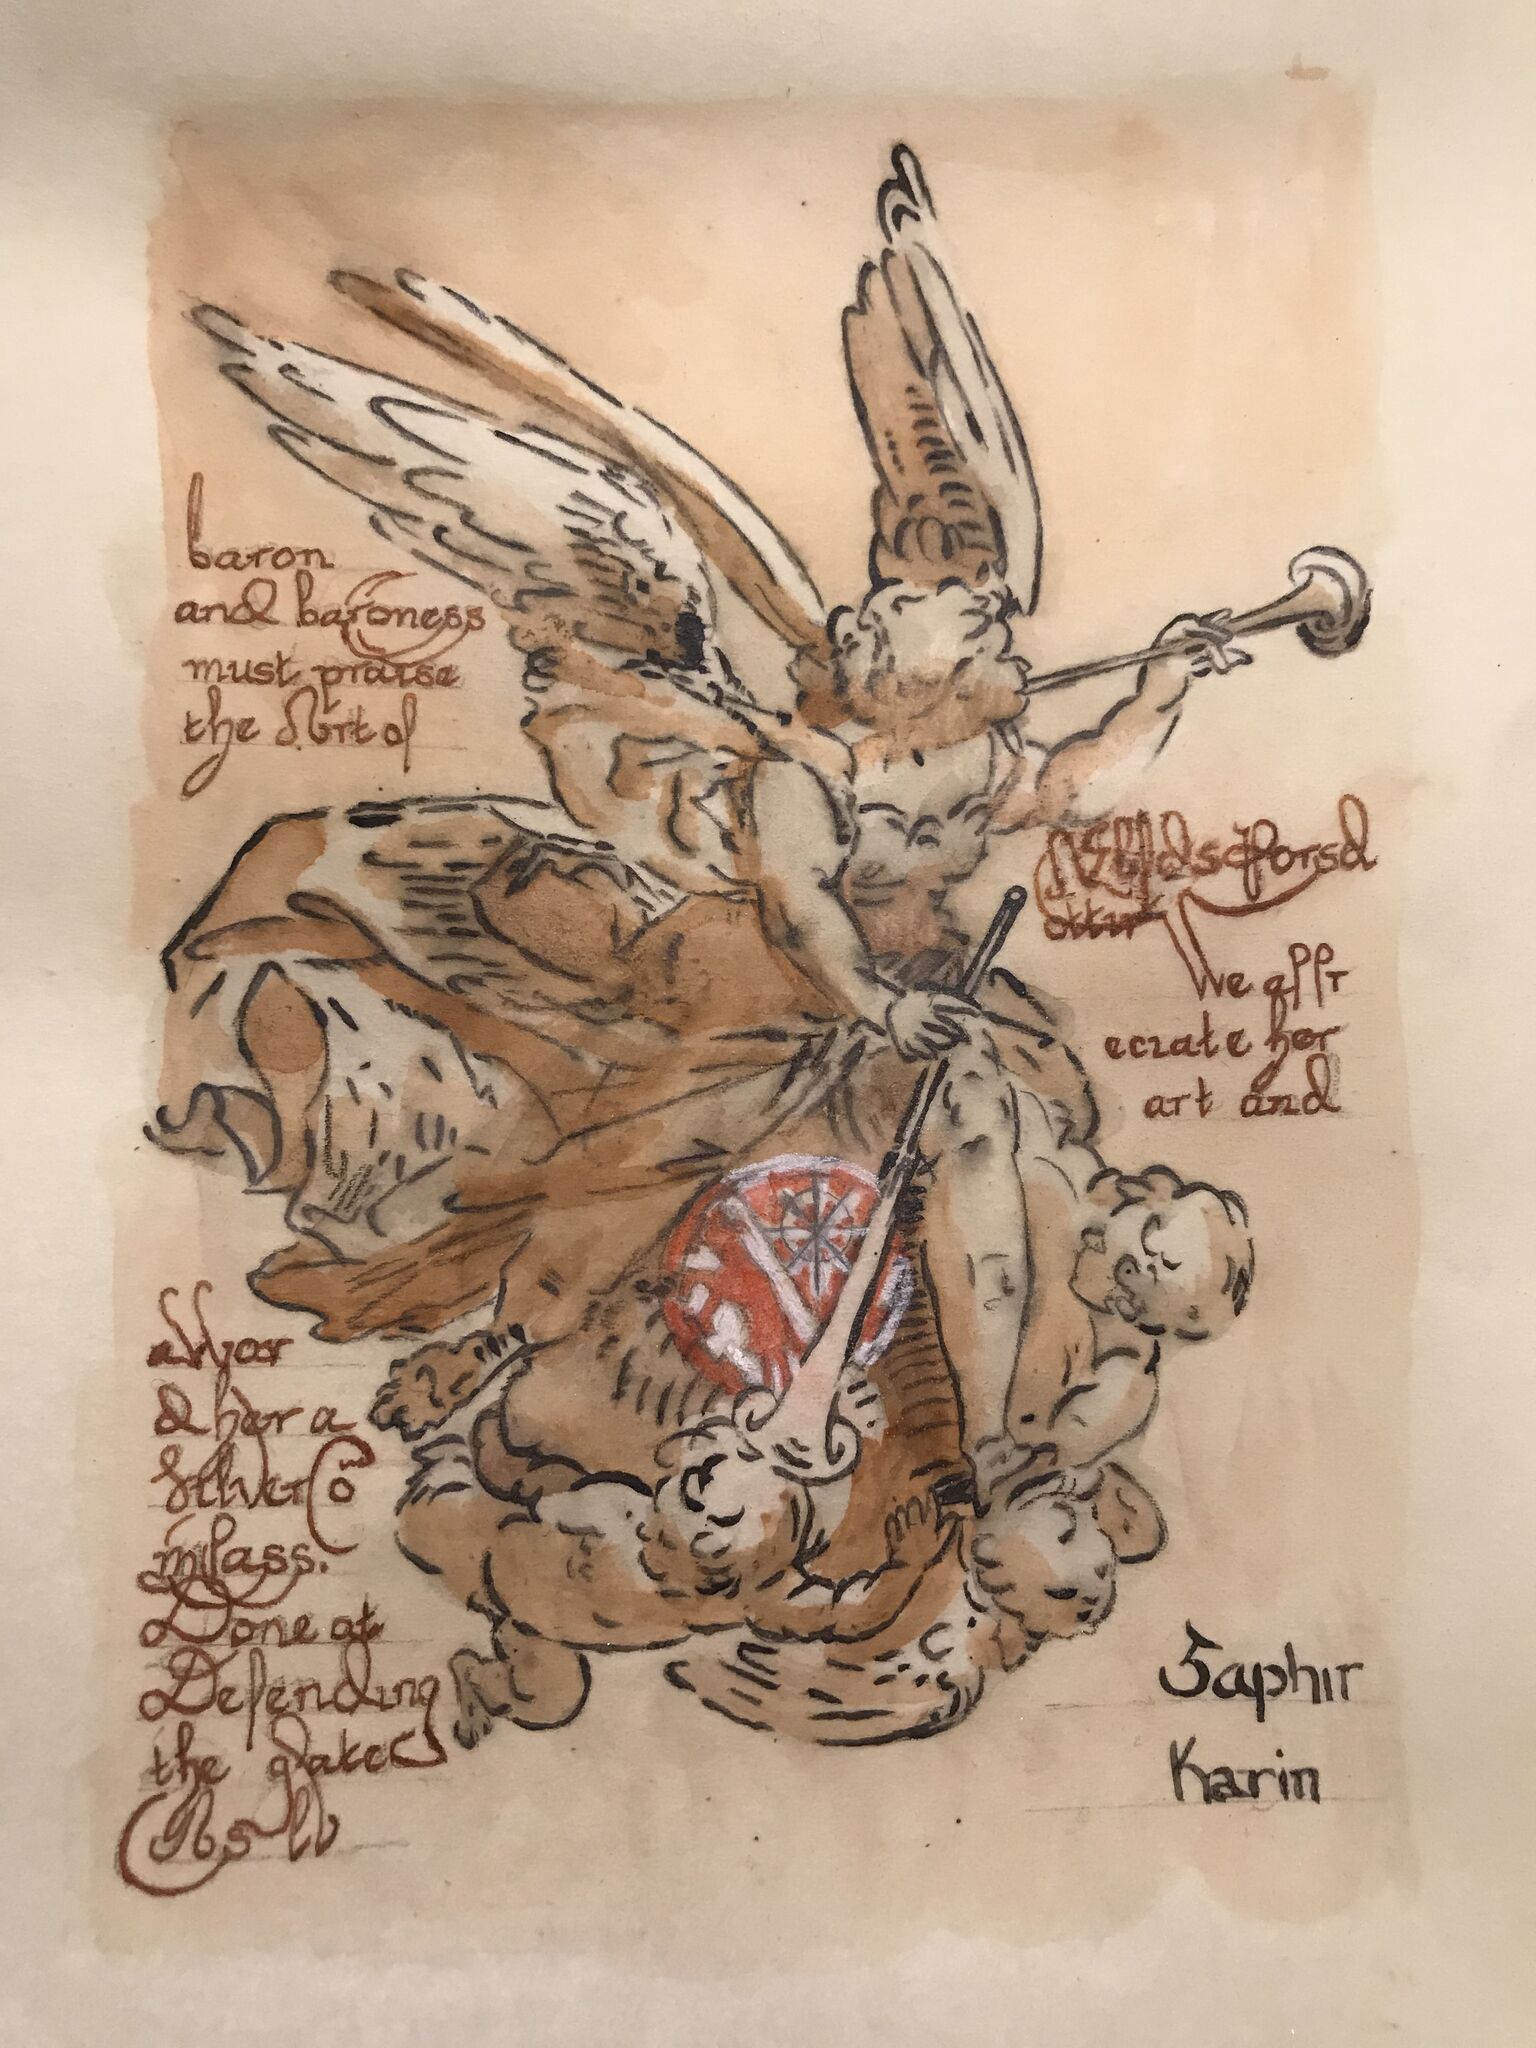 baron
and baroness
must praise
the Art of
We appr
eciate her
art and
awar
d her a
Silver Co
mpass.
Done at
Defending
the gate
AS
Saphir
Karin